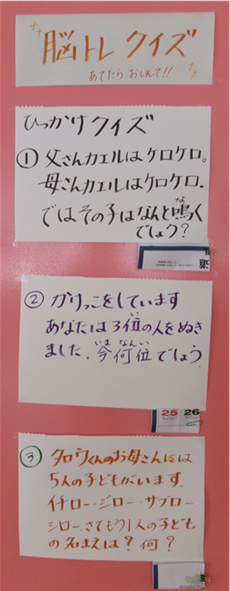 脳トレ クイズ
あてたら おしえて!!
ひっかけクイズ
① 父さんカエルはケロケロ。
母さんカエルはケロケロ.
ではその子はなんと鳴く
でしょう?
② かけっこをしています
あなたは3位の人をぬき
ました. 今何位でしょう
25 26
③ タロウくんのお母さんには
5人の子どもがいます.
イチロー・ジロー・サブロー
シロー. さてもう1人の子ども
の名まえは?何?